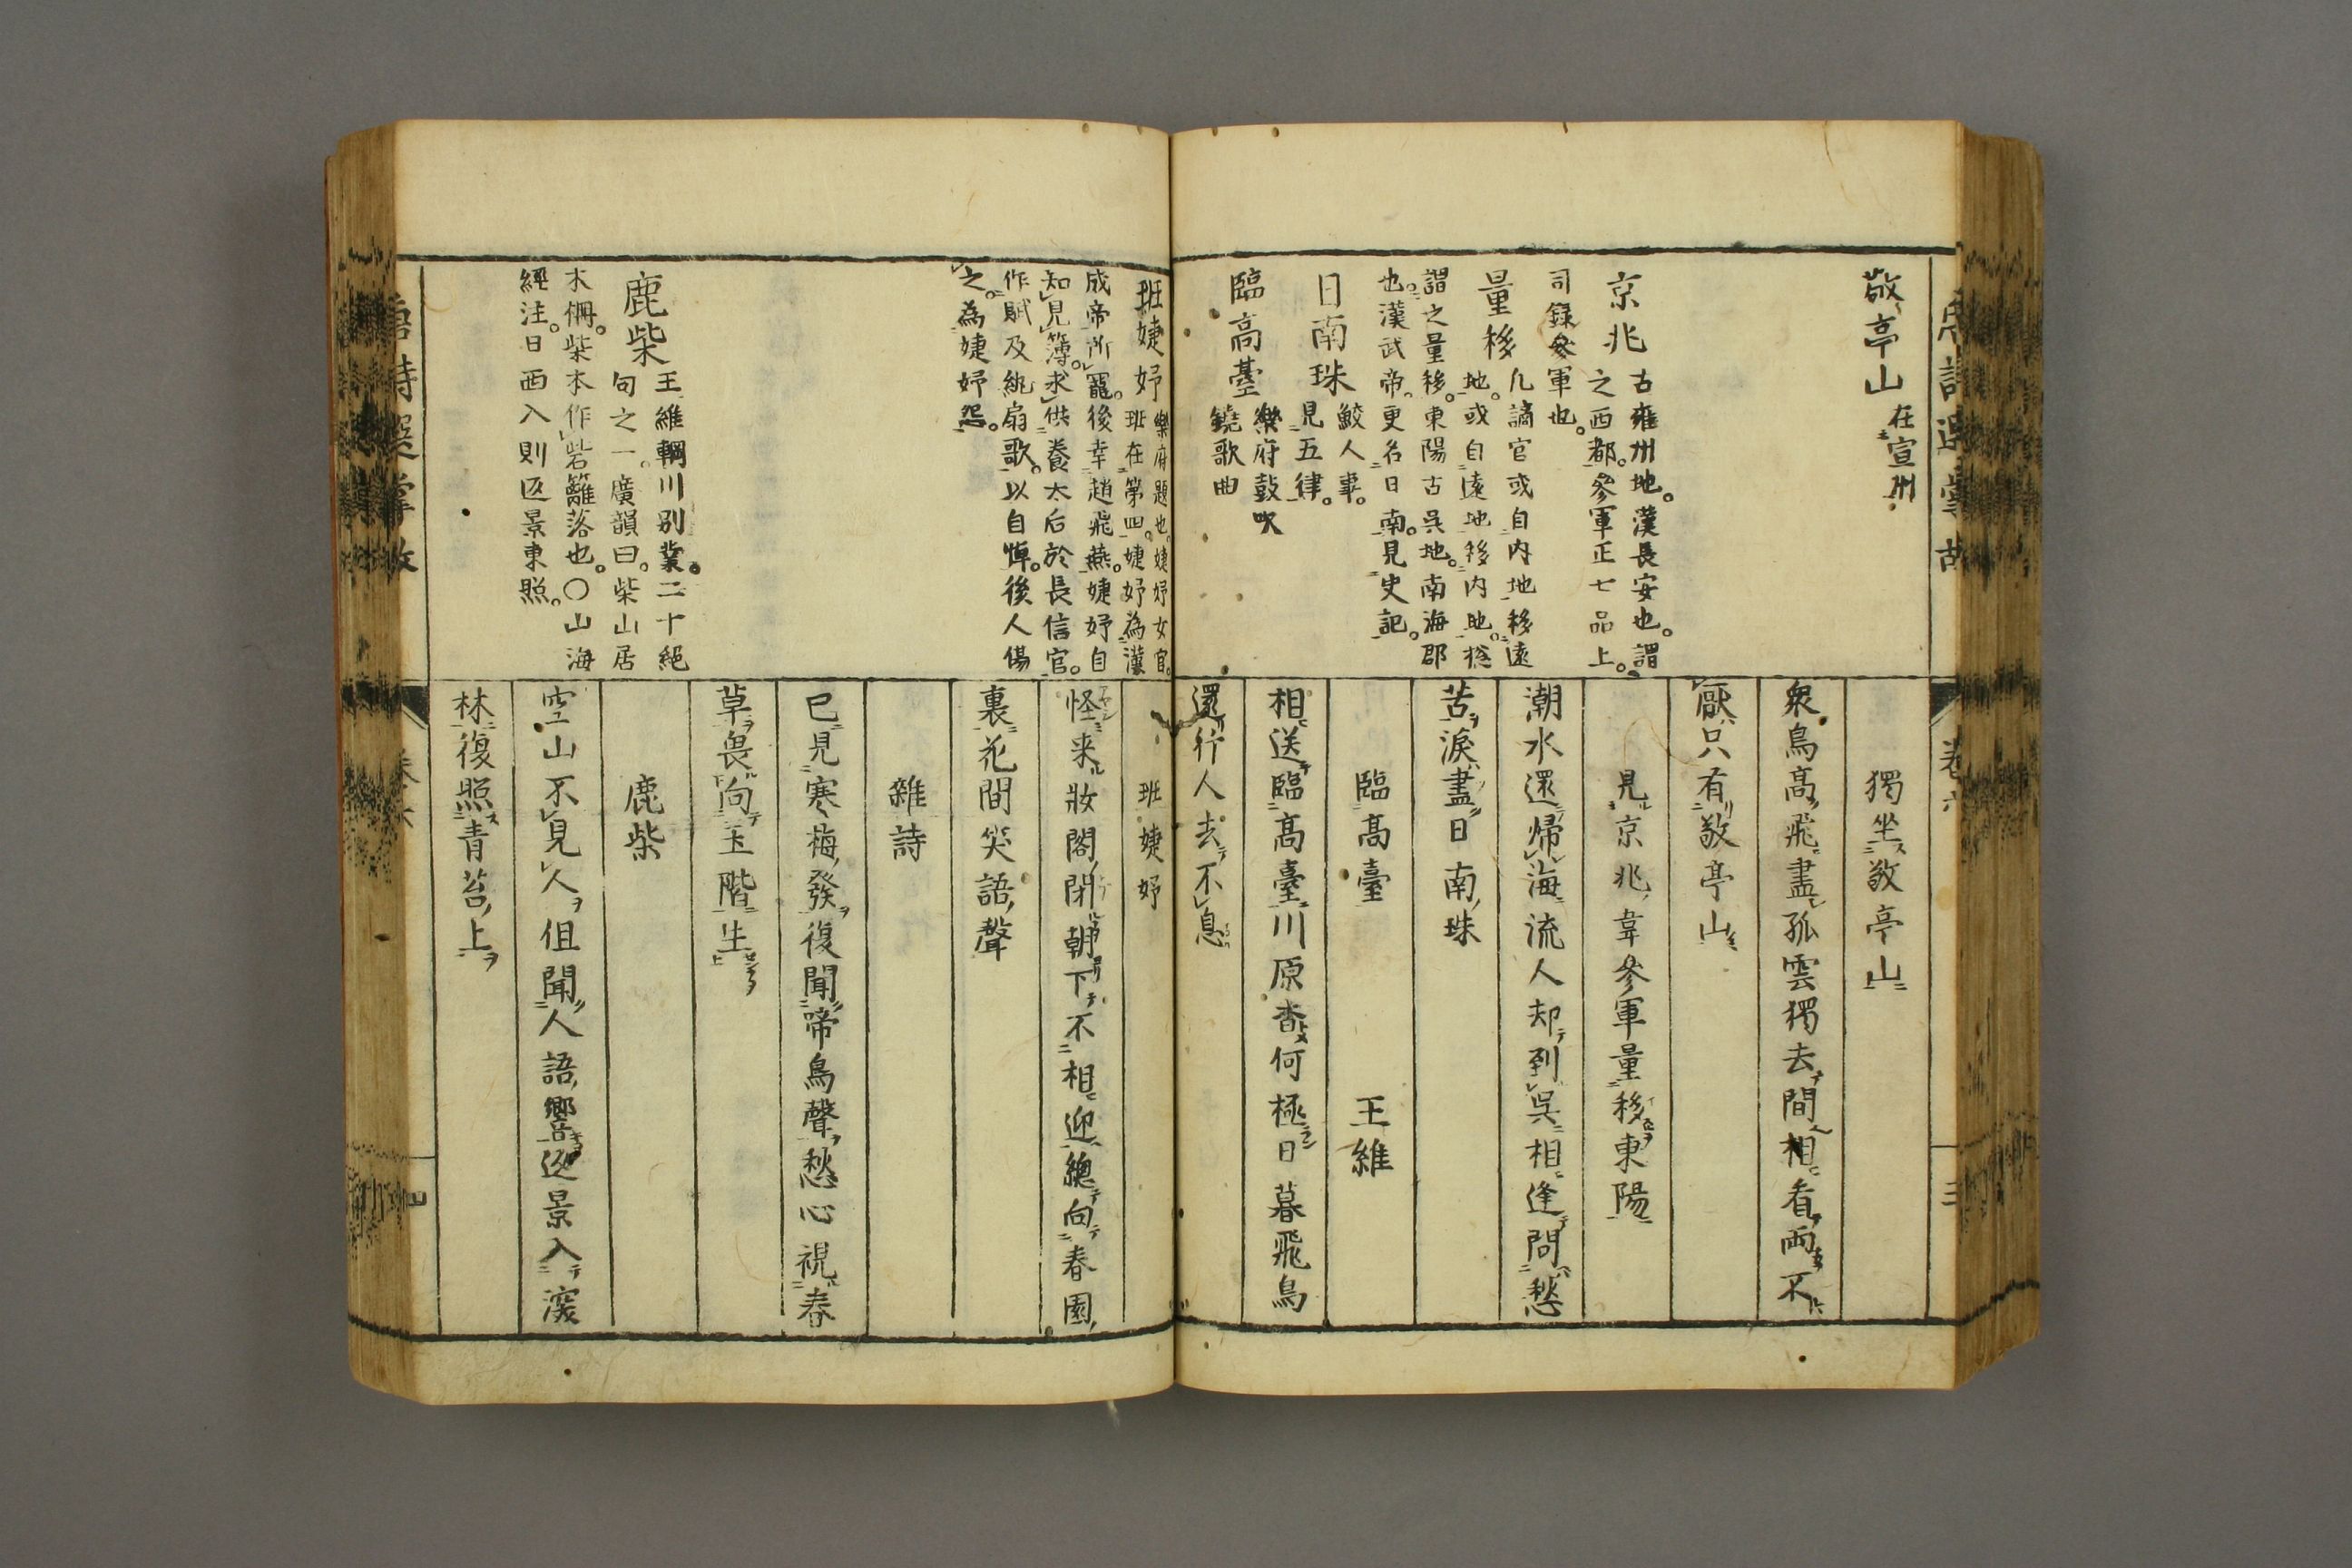 敬亭山在宣州
京兆古雍州地。漢長安也。謂
之西都。參軍正七品上。
司録參軍也。
量移凡謫官或自内地移遠
地。或自遠地移内地。
謂之量移。東陽古呉地。南海郡
也。漢武帝。更名日南。見史記。
日南珠鮫人事。
見五律。
臨高臺樂府鼓吹
鐃歌曲
獨坐敬亭山
衆鳥高飛盡孤雲獨去閒相看兩不
厭只有敬亭山
見京兆韋參軍量移東陽
潮水還歸海流人却到呉相逢問愁
苦淚盡日南珠
臨高臺 王維
相送臨高臺川原杳何極日暮飛鳥
還行人去不息
班婕妤樂府題也。婕妤女官。
班在第四。婕妤為漢
成帝所寵。後幸趙飛燕。婕妤自
知見簿。求供養太后於長信宮。
作賦及紈扇歌。以自悼。後人傷
之。為婕妤怨。
鹿柴王維輞川别業。二十絶
句之一。廣韻曰。柴山居
木柵。柴本作砦籬落也。〇山海
經注。日西入則返景東照。
班婕妤
怪来妝閣閉朝下不相迎總向春園
裏花間笑語聲
雜詩
已見寒梅發復聞啼鳥聲愁心視春
草畏向玉階生
鹿柴
空山不見人但聞人語響返景入深
林復照青苔上